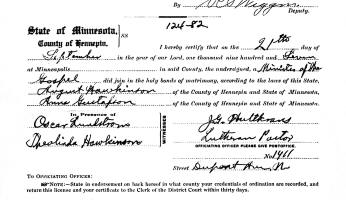 Deputy.
124-82
State of Minnesota,
County of Hennepin.
SS
I hereby certify that on the 21th day of
September in the year of our Lord, one thousand nine hundred and Seven
at Minneapolis in said County, the undersigned, a Minister of the
Gospel did join in the holy bonds of matrimony, according to the laws of this State,
August Hawkinson of the County of Hennepin and State of Minnesota, and
Anna Gustafson of the County of Hennepin and State of Minnesota.
In Presence of
Oscar
Theolinda Hawkinson
WITNESSES
J.G. Hultkrans
Lutheran Pastor
OFFICIATING OFFICER PLEASE GIVE POSTOFFICE.
No. 1461
Street Dupont Ave. N
TO OFFICIATING OFFICER:
NOTE:—State in endorsement on back hereof in what county your credentials of ordination are recorded, and
return this license and your certificate to the Clerk of the District Court within thirty days.